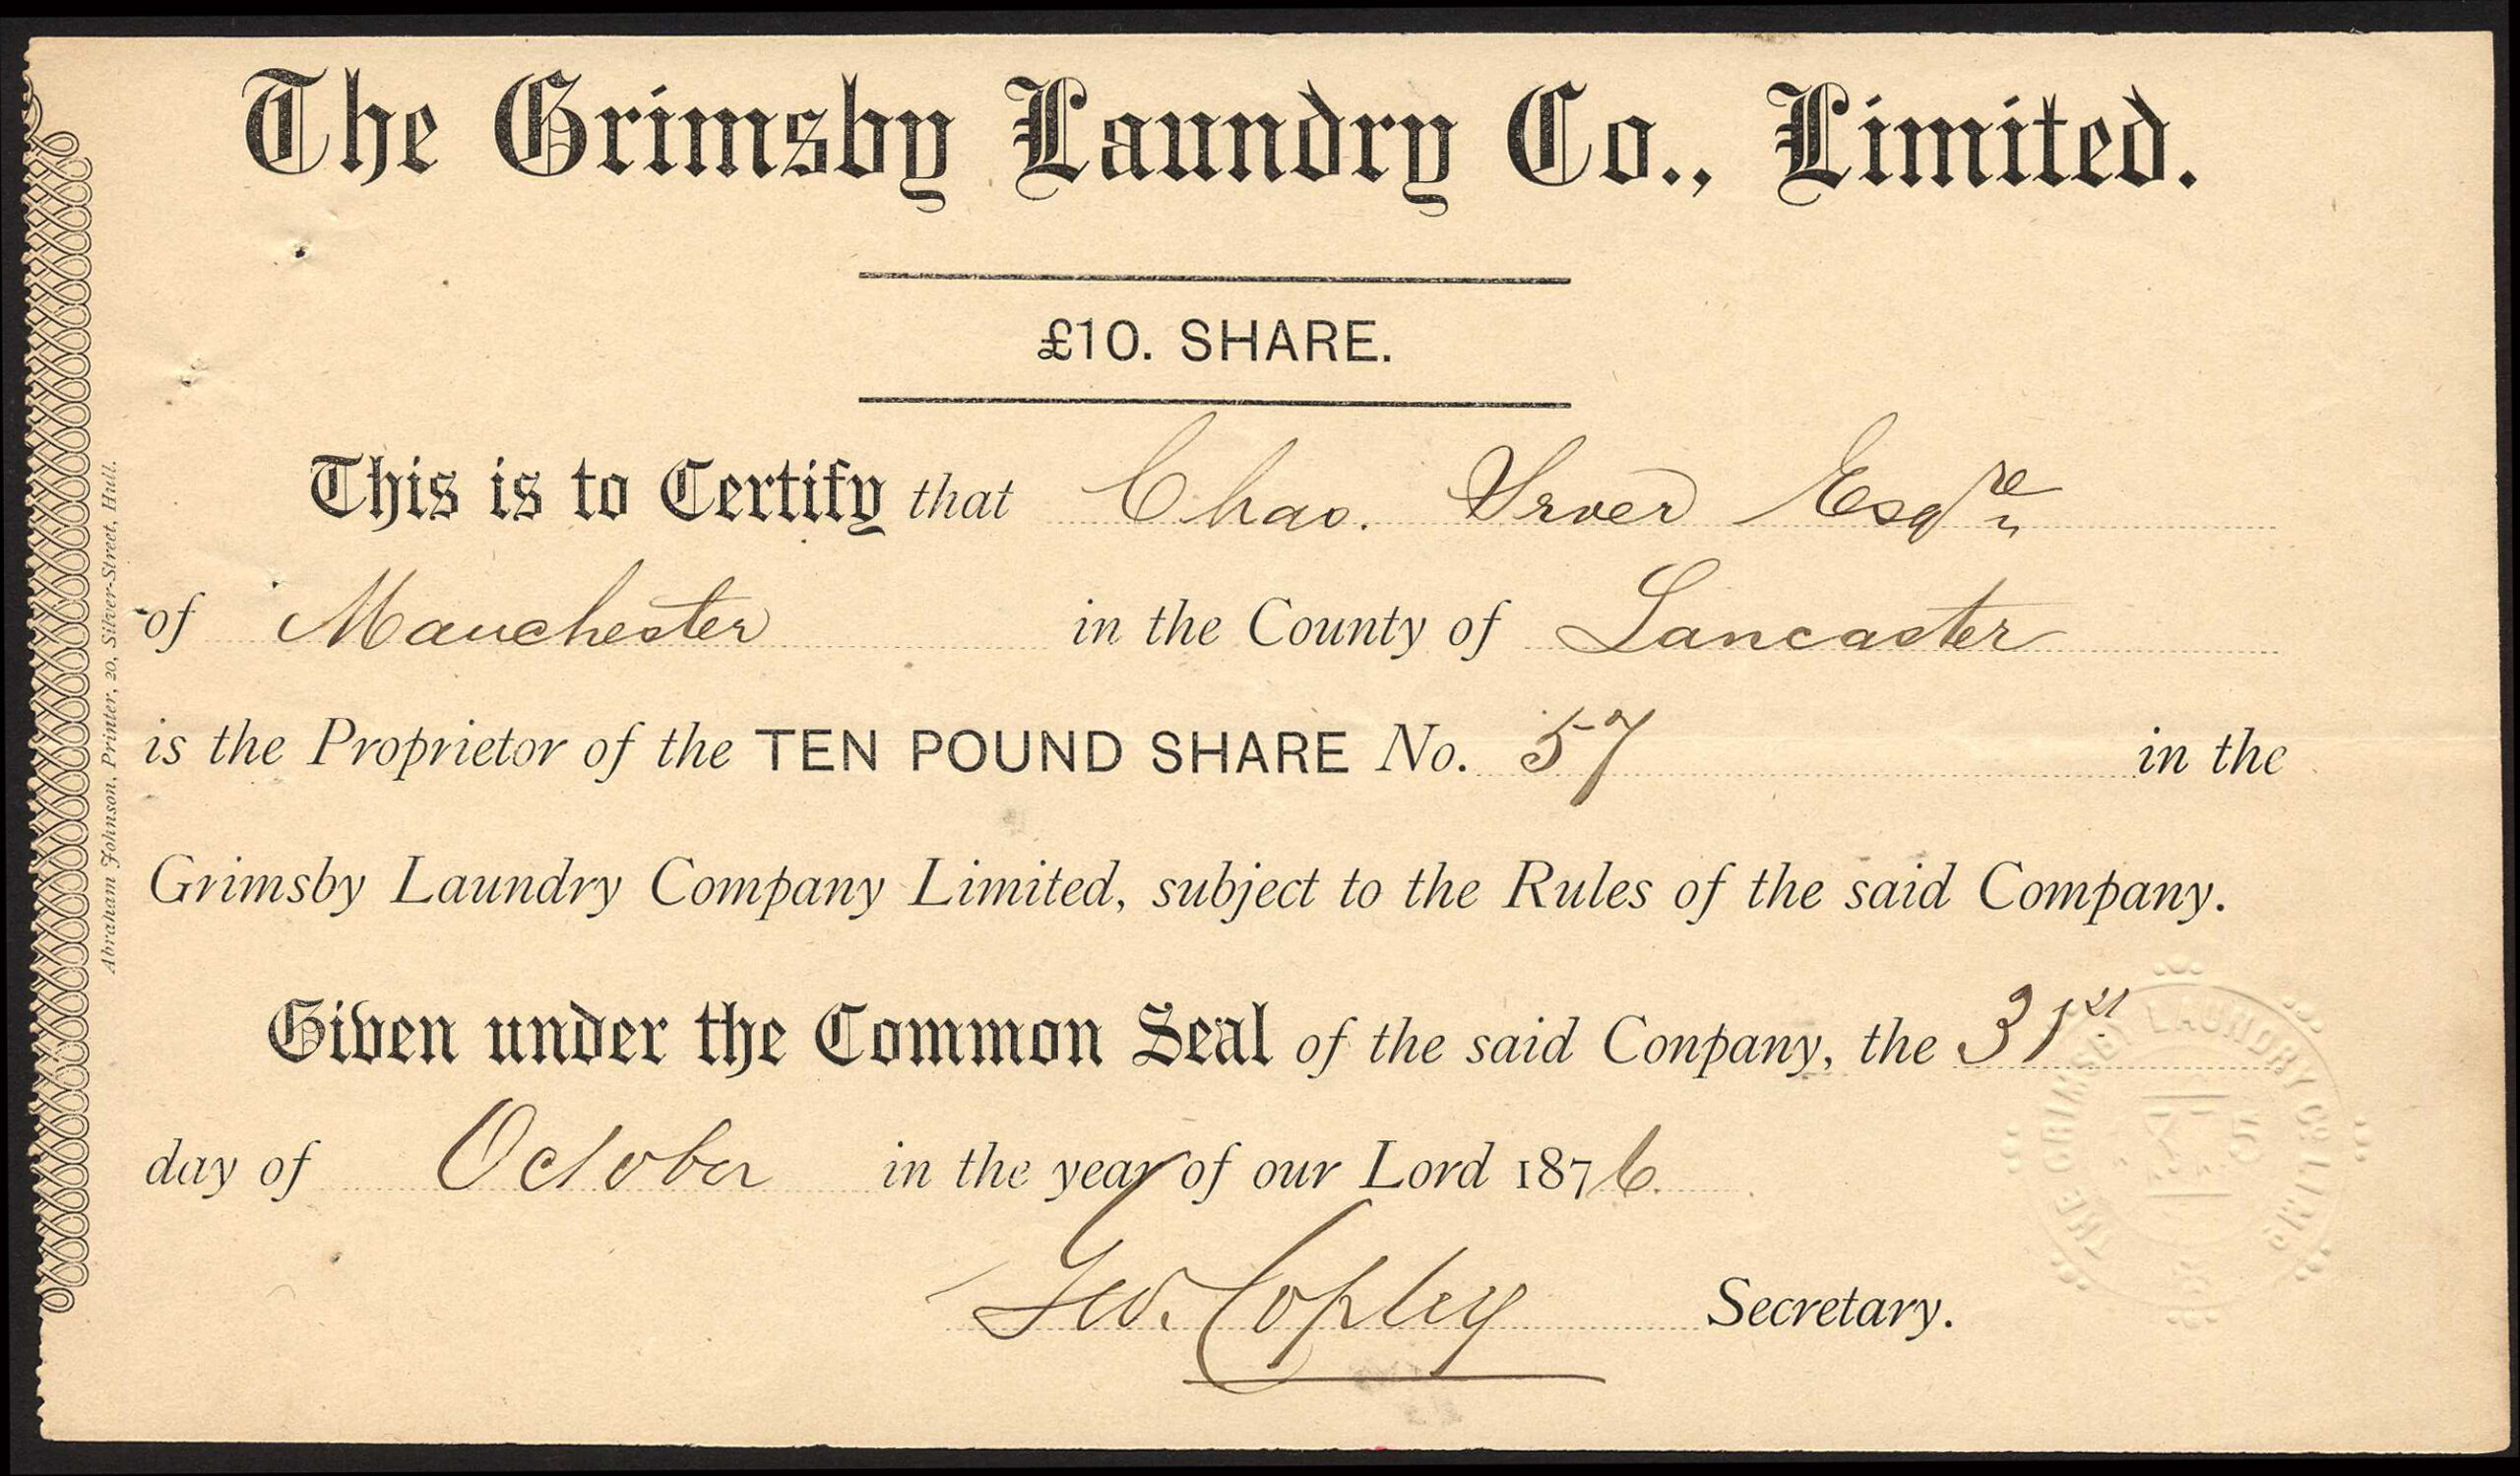 The Grimsby Laundry Co., Limited.
£10. SHARE.
This is to Certify that Chas. Esqre
of Manchester in the County of Lancaster
is the Proprietor of the TEN POUND SHARE No. 57 in the
Grimsby Laundry Company Limited, subject to the Rules of the said Company.
Given under the Common Seal of the said Conpany, the 31st
day of October in the year of our Lord 1876.
Geo. Copley Secretary.
Abraham Johnson, Printer, 20, Silver-Street, Hull.
THE GRIMSBY LAUNDRY Co. LIMD.